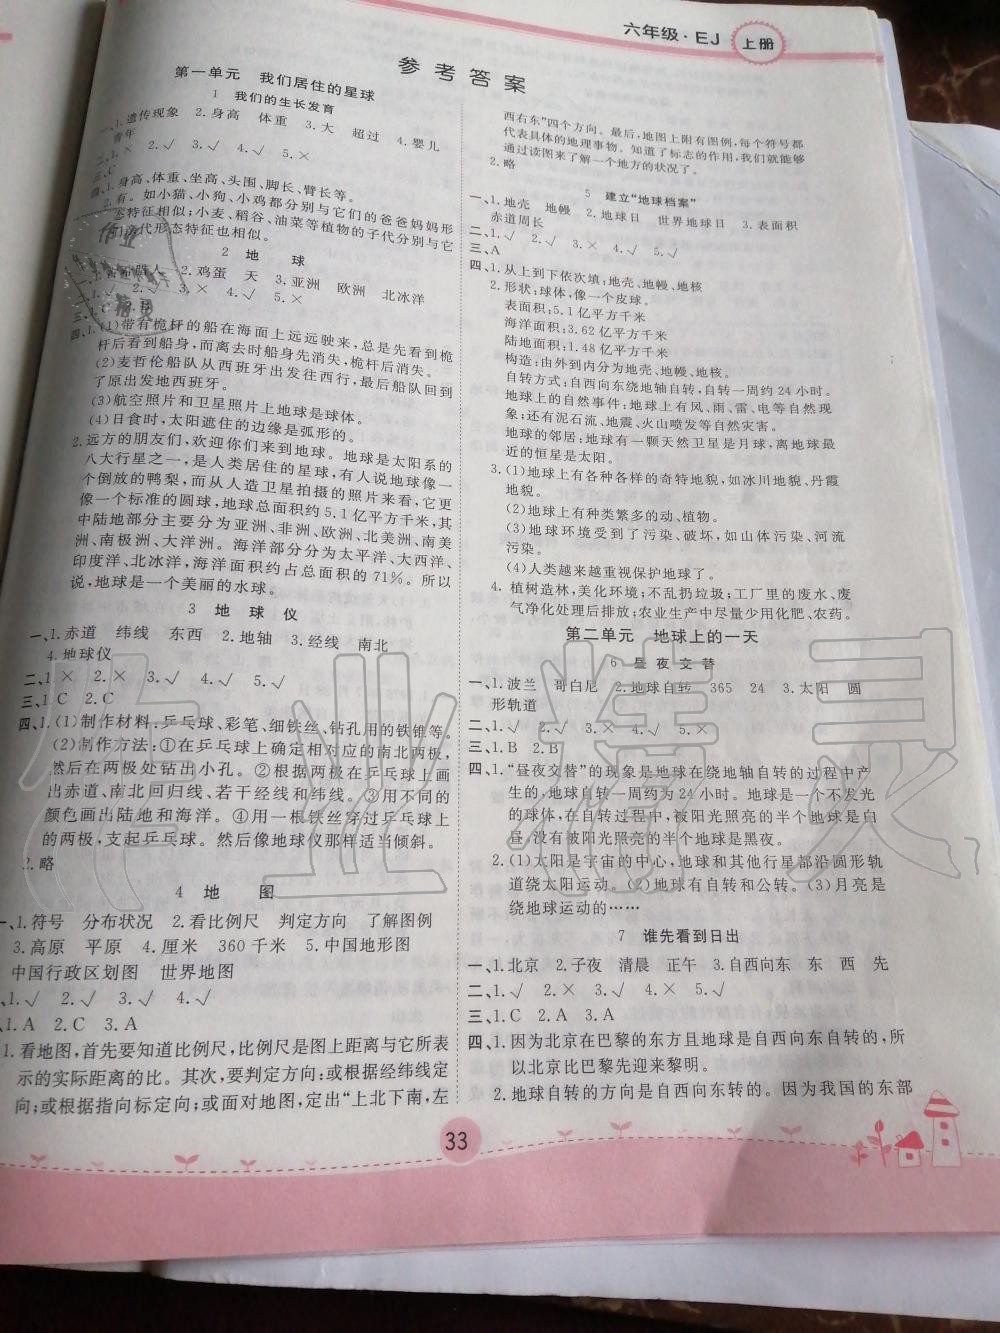 六年级·EJ 上册
参考答案
第一单元 我们居住的星球
1 我们的生长发育
一、1.遗传现象 2.身高 体重 3.大 超过 4.婴儿
青年
二、1.× 2.√ 3.√ 4.√ 5.×
三、C
四、1.身高、体重、坐高、头围、脚长、臂长等。
2.有。如小猫、小狗、小鸡都分别与它们的爸爸妈妈形
态特征相似;小麦、稻谷、油菜等植物的子代分别与它
们亲代形态特征也相似。
2 地 球
2.鸡蛋 天 3.亚洲 欧洲 北冰洋
2.√ 3.× 4.√ 5.×
三、1.C 2.B
四、1.(1)带有桅杆的船在海面上远远驶来,总是先看到桅
杆后看到船身,而离去时船身先消失,桅杆后消失。
(2)麦哲伦船队从西班牙出发往西行,最后船队回到
了原出发地西班牙。
(3)航空照片和卫星照片上地球是球体。
(4)日食时,太阳遮住的边缘是弧形的。
2.远方的朋友们,欢迎你们来到地球。地球是太阳系的
八大行星之一,是人类居住的星球,有人说地球像一
个倒放的鸭梨,而从人造卫星拍摄的照片来看,它更
像一个标准的圆球,地球总面积约5.1亿平方千米,其
中陆地部分主要分为亚洲、非洲、欧洲、北美洲、南美
洲、南极洲、大洋洲。海洋部分分为太平洋、大西洋、
印度洋、北冰洋,海洋面积约占总面积的71%。所以
说,地球是一个美丽的水球。
3 地 球 仪
一、1.赤道 纬线 东西 2.地轴 3.经线 南北
4.地球仪
二、1.× 2.× 3.√ 4.√ 5.√
三、1.C 2.C
四、1.(1)制作材料:乒乓球、彩笔、细铁丝、钻孔用的铁锥等。
(2)制作方法:①在乒乓球上确定相对应的南北两极,
然后在两极处钻出小孔。②根据两极在乒乓球上画
出赤道、南北回归线、若干经线和纬线。③用不同的
颜色画出陆地和海洋。④用一根铁丝穿过乒乓球上
的两极,支起乒乓球。然后像地球仪那样适当倾斜。
2.略
4 地 图
一、1.符号 分布状况 2.看比例尺 判定方向 了解图例
3.高原 平原 4.厘米 360千米 5.中国地形图
中国行政区划图 世界地图
、1.√ 2.√ 3.√ 4.√
、1.A 2.C 3.A
1.看地图,首先要知道比例尺,比例尺是图上距离与它所表
示的实际距离的比。其次,要判定方向:或根据经纬线定
向;或根据指向标定向;或面对地图,定出“上北下南,左
西右东”四个方向。最后,地图上附有图例,每个符号都
代表具体的地理事物。知道了标志的作用,我们就能够
通过读图来了解一个地方的状况了。
2.略
5 建立“地球档案”
一、1.地壳 地幔 2.地球日 世界地球日 3.表面积
赤道周长
二、1.√ 2.√ 3.× 4.√ 5.√
三、A
四、1.从上到下依次填:地壳、地幔、地核
2.形状:球体,像一个皮球。
表面积:5.1亿平方千米
海洋面积:3.62亿平方千米
陆地面积:1.48亿平方千米
构造:由外到内分为地壳、地幔、地核。
自转方式:自西向东绕地轴自转,自转一周约24小时。
地球上的自然事件:地球上有风、雨、雷、电等自然现
象;还有泥石流、地震、火山喷发等自然灾害。
地球的邻居:地球有一颗天然卫星是月球,离地球最
近的恒星是太阳。
3.(1)地球上有各种各样的奇特地貌,如冰川地貌、丹霞
地貌。
(2)地球上有种类繁多的动、植物。
(3)地球环境受到了污染、破坏,如山体污染、河流
污染。
(4)人类越来越重视保护地球了。
4. 植树造林,美化环境;不乱扔垃圾;工厂里的废水、废
气净化处理后排放;农业生产中尽量少用化肥、农药。
第二单元 地球上的一天
6 昼夜交替
一、1.波兰 哥白尼 2.地球自转 365 24 3.太阳 圆
形轨道
二、1.√ 2.√ 3.× 4.√ 5.×
三、1.B 2.B
四、1.“昼夜交替”的现象是地球在绕地轴自转的过程中产
生的,地球自转一周约为24小时。地球是一个不发光
的球体,在自转过程中,被阳光照亮的半个地球是白
昼,没有被阳光照亮的半个地球是黑夜。
2.(1)太阳是宇宙的中心,地球和其他行星都沿圆形轨
道绕太阳运动。(2)地球有自转和公转。(3)月亮是
绕地球运动的……
7 谁先看到日出
一、1.北京 2.子夜 清晨 正午 3.自西向东 东 西 先
二、1.√ 2.× 3.√ 4.× 5.√
三、1.C 2.A 3.A
四、1.因为北京在巴黎的东方且地球是自西向东自转的,所
以北京比巴黎先迎来黎明。
2.地球自转的方向是自西向东转的。因为我国的东部
33
作业精灵